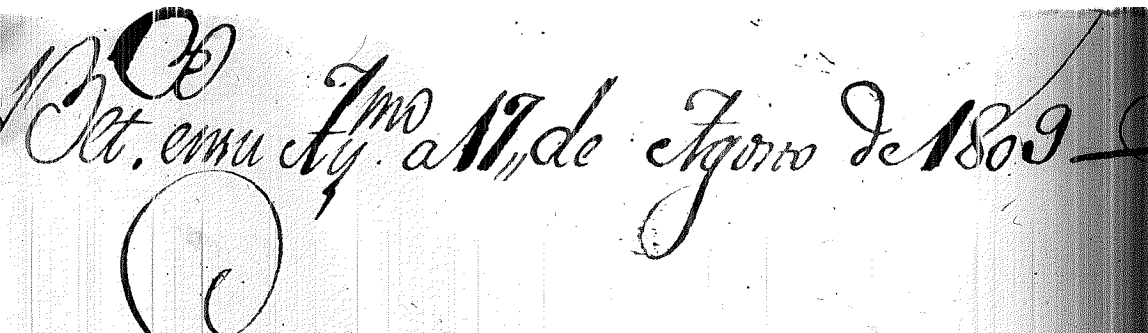 ensu Ay.mo a 17,, de Agosto de 1809